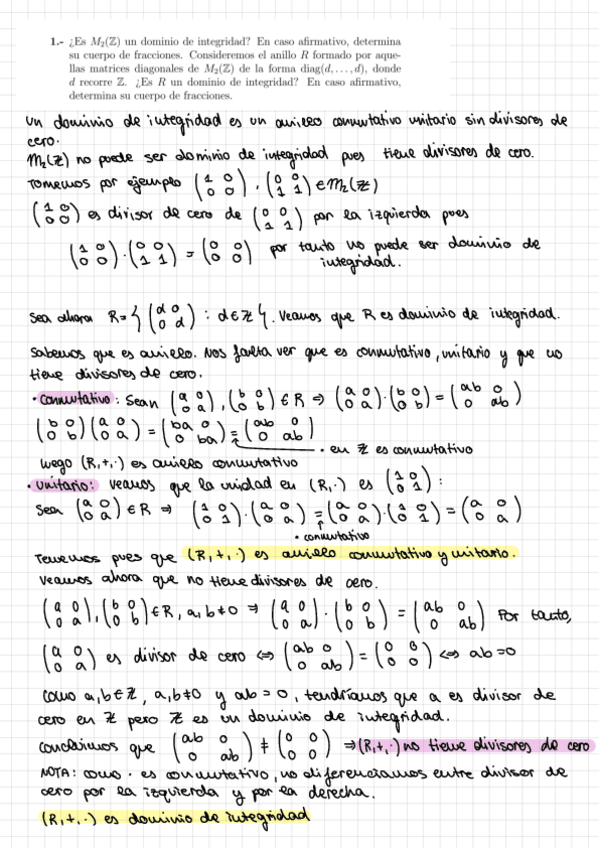 1.- ¿Es M₂(ℤ) un dominio de integridad? En caso afirmativo, determina
su cuerpo de fracciones. Consideremos el anillo R formado por aque-
llas matrices diagonales de M₂(ℤ) de la forma diag(d, ..., d), donde
d recorre ℤ. ¿Es R un dominio de integridad? En caso afirmativo,
determina su cuerpo de fracciones.
Un dominio de integridad es un anillo conmutativo unitario sin divisores de
cero.
M₂(ℤ) no puede ser dominio de integridad pues tiene divisores de cero.
Tomemos por ejemplo (1 0; 0 0), (0 0; 1 1) ∈ M₂(ℤ)
(1 0; 0 0) es divisor de cero de (0 0; 1 1) por la izquierda pues
(1 0; 0 0) · (0 0; 1 1) = (0 0; 0 0) por tanto no puede ser dominio de
integridad.
Sea ahora R = {(d 0; 0 d) : d ∈ ℤ}. Veamos que R es dominio de integridad.
Sabemos que es anillo. Nos falta ver que es conmutativo, unitario y que no
tiene divisores de cero.
· conmutativo: Sean (a 0; 0 a), (b 0; 0 b) ∈ R ⇒ (a 0; 0 a) · (b 0; 0 b) = (ab 0; 0 ab)
(b 0; 0 b) (a 0; 0 a) = (ba 0; 0 ba) = (ab 0; 0 ab)
· en ℤ es conmutativo
luego (R,+,·) es anillo conmutativo
· unitario: veamos que la unidad en (R,·) es (1 0; 0 1) :
Sea (a 0; 0 a) ∈ R ⇒ (1 0; 0 1) · (a 0; 0 a) = (a 0; 0 a) · (1 0; 0 1) = (a 0; 0 a)
· conmutativo
Tenemos pues que (R,+,·) es anillo conmutativo y unitario.
Veamos ahora que no tiene divisores de cero.
(a 0; 0 a), (b 0; 0 b) ∈ R, a,b ≠ 0 ⇒ (a 0; 0 a) · (b 0; 0 b) = (ab 0; 0 ab) Por tanto,
(a 0; 0 a) es divisor de cero ⇔ (ab 0; 0 ab) = (0 0; 0 0) ⇔ ab = 0
Como a,b ∈ ℤ, a,b ≠ 0 y ab = 0, tendríamos que a es divisor de
cero en ℤ pero ℤ es un dominio de integridad.
Concluimos que (ab 0; 0 ab) ≠ (0 0; 0 0) ⇒ (R,+,·) no tiene divisores de cero
NOTA: como · es conmutativo, no diferenciamos entre divisor de
cero por la izquierda y por la derecha.
(R,+,·) es dominio de integridad